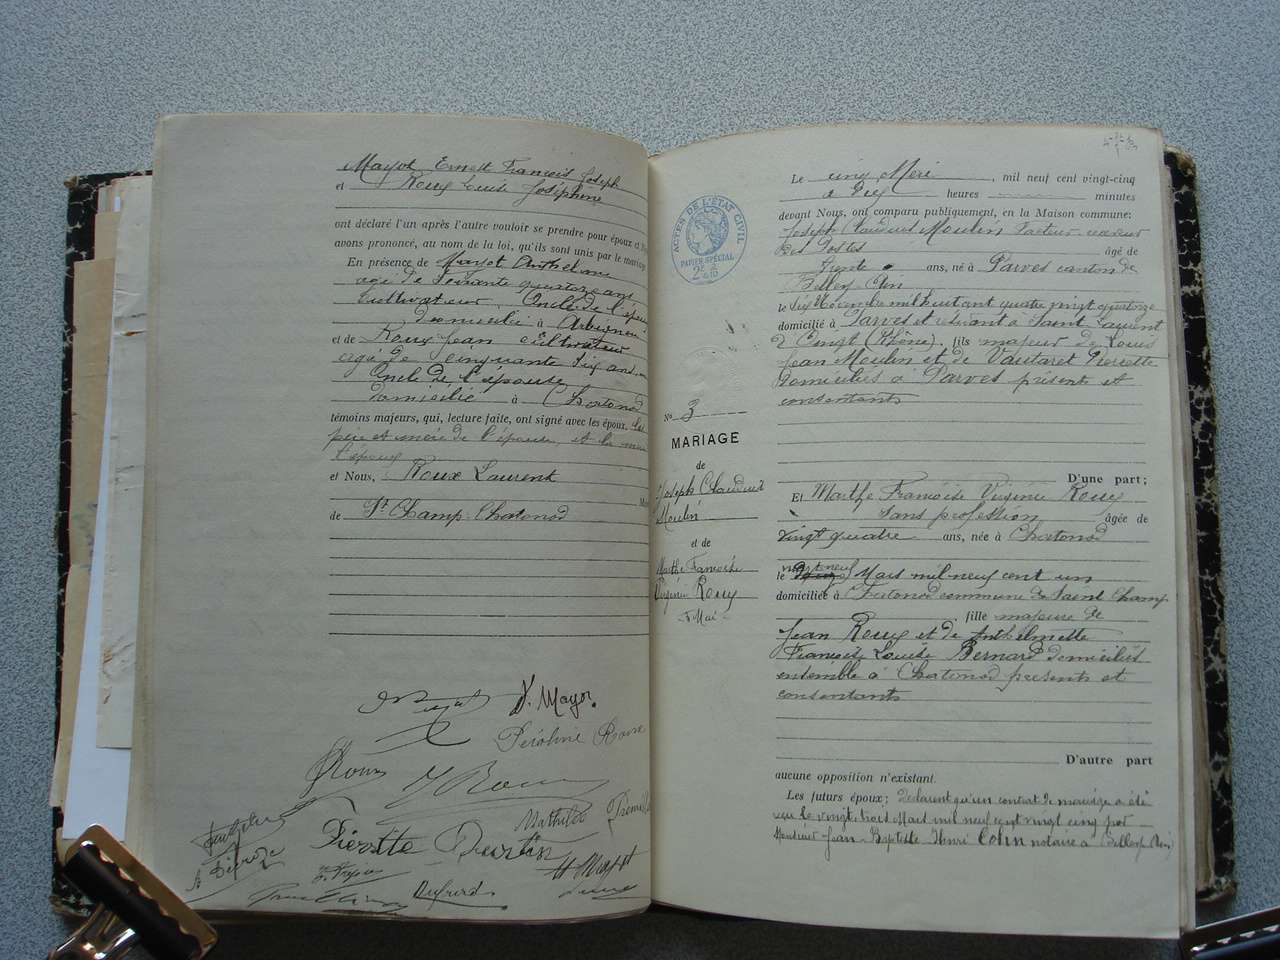 Mayot Ernest François Joseph
et Roux Louise Joséphine
ont déclaré l'un après l'autre vouloir se prendre pour époux et
avons prononcé, au nom de la loi, qu'ils sont unis par le mariage
En présence de Mayot Anthelme
agé de soixante quatorze ans
Cultivateur, Oncle de l'époux
domicilié à Arbignieu
et de Roux Jean cultivateur
agé de cinquante six ans
Oncle de l'épouse
domicilié à Chatonod
témoins majeurs, qui, lecture faite, ont signé avec les époux, les
père et mère de l'épouse, et la mère
l'époux
et Nous, Roux Laurent
de St Champ-Chatonod
A. Mayot
Péroline Roux
Roux
Roux
Mathilde
Pierrette Durtin
Dufurd
H Mayot
ACTES DE L'ÉTAT CIVIL
PAPIER SPÉCIAL
No 3
MARIAGE
de
Joseph Claudius
Moulin
et de
Marthe Françoise
Virginie Roux
5 Mai
Le cinq Mai, mil neuf cent vingt-cinq
à dix heures minutes
devant Nous, ont comparu publiquement, en la Maison commune:
Joseph Claudius Moulin facteur-receveur
des Postes âgé de
trente ans, né à Parves canton de
Belley Ain
le dix décembre mil huit cent quatre vingt quatorze
domicilié à Parves et résidant à Saint Laurent
d'Oingt (Rhône), fils majeur de Louis
Jean Moulin et de Vautaret Pierrette
domiciliés à Parves présents et
consentants
D'une part;
Et Marthe Françoise Virginie Roux
sans profession âgée de
vingt quatre ans, née à Chatonod
le vingt neuf Mars mil neuf cent un
domiciliée à Chatonod commune de Saint Champ
, fille majeure de
Jean Roux et de Anthelmette
Françoise Louise Bernard domiciliés
ensemble à Chatonod présents et
consentants
D'autre part
aucune opposition n'existant.
Les futurs époux; déclarent qu'un contrat de mariage a été
reçu le vingt trois Mars mil neuf cent vingt cinq par
Monsieur Jean-Baptiste Henri Colin notaire à Belley (Ain)